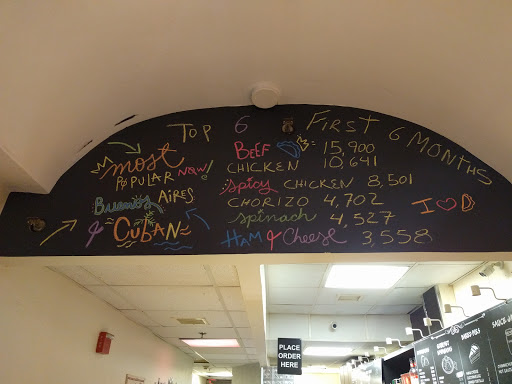 TOP 6 FIRST 6 MONTHS
most POPULAR NOW!
Buenos AIRES
& CUBAN
BEEF = 15,900
CHICKEN 10,641
Spicy CHICKEN 8,501
CHORIZO 4,702
spinach 4,527
HAM & Cheese 3,558
I
PLACE
ORDER
HERE